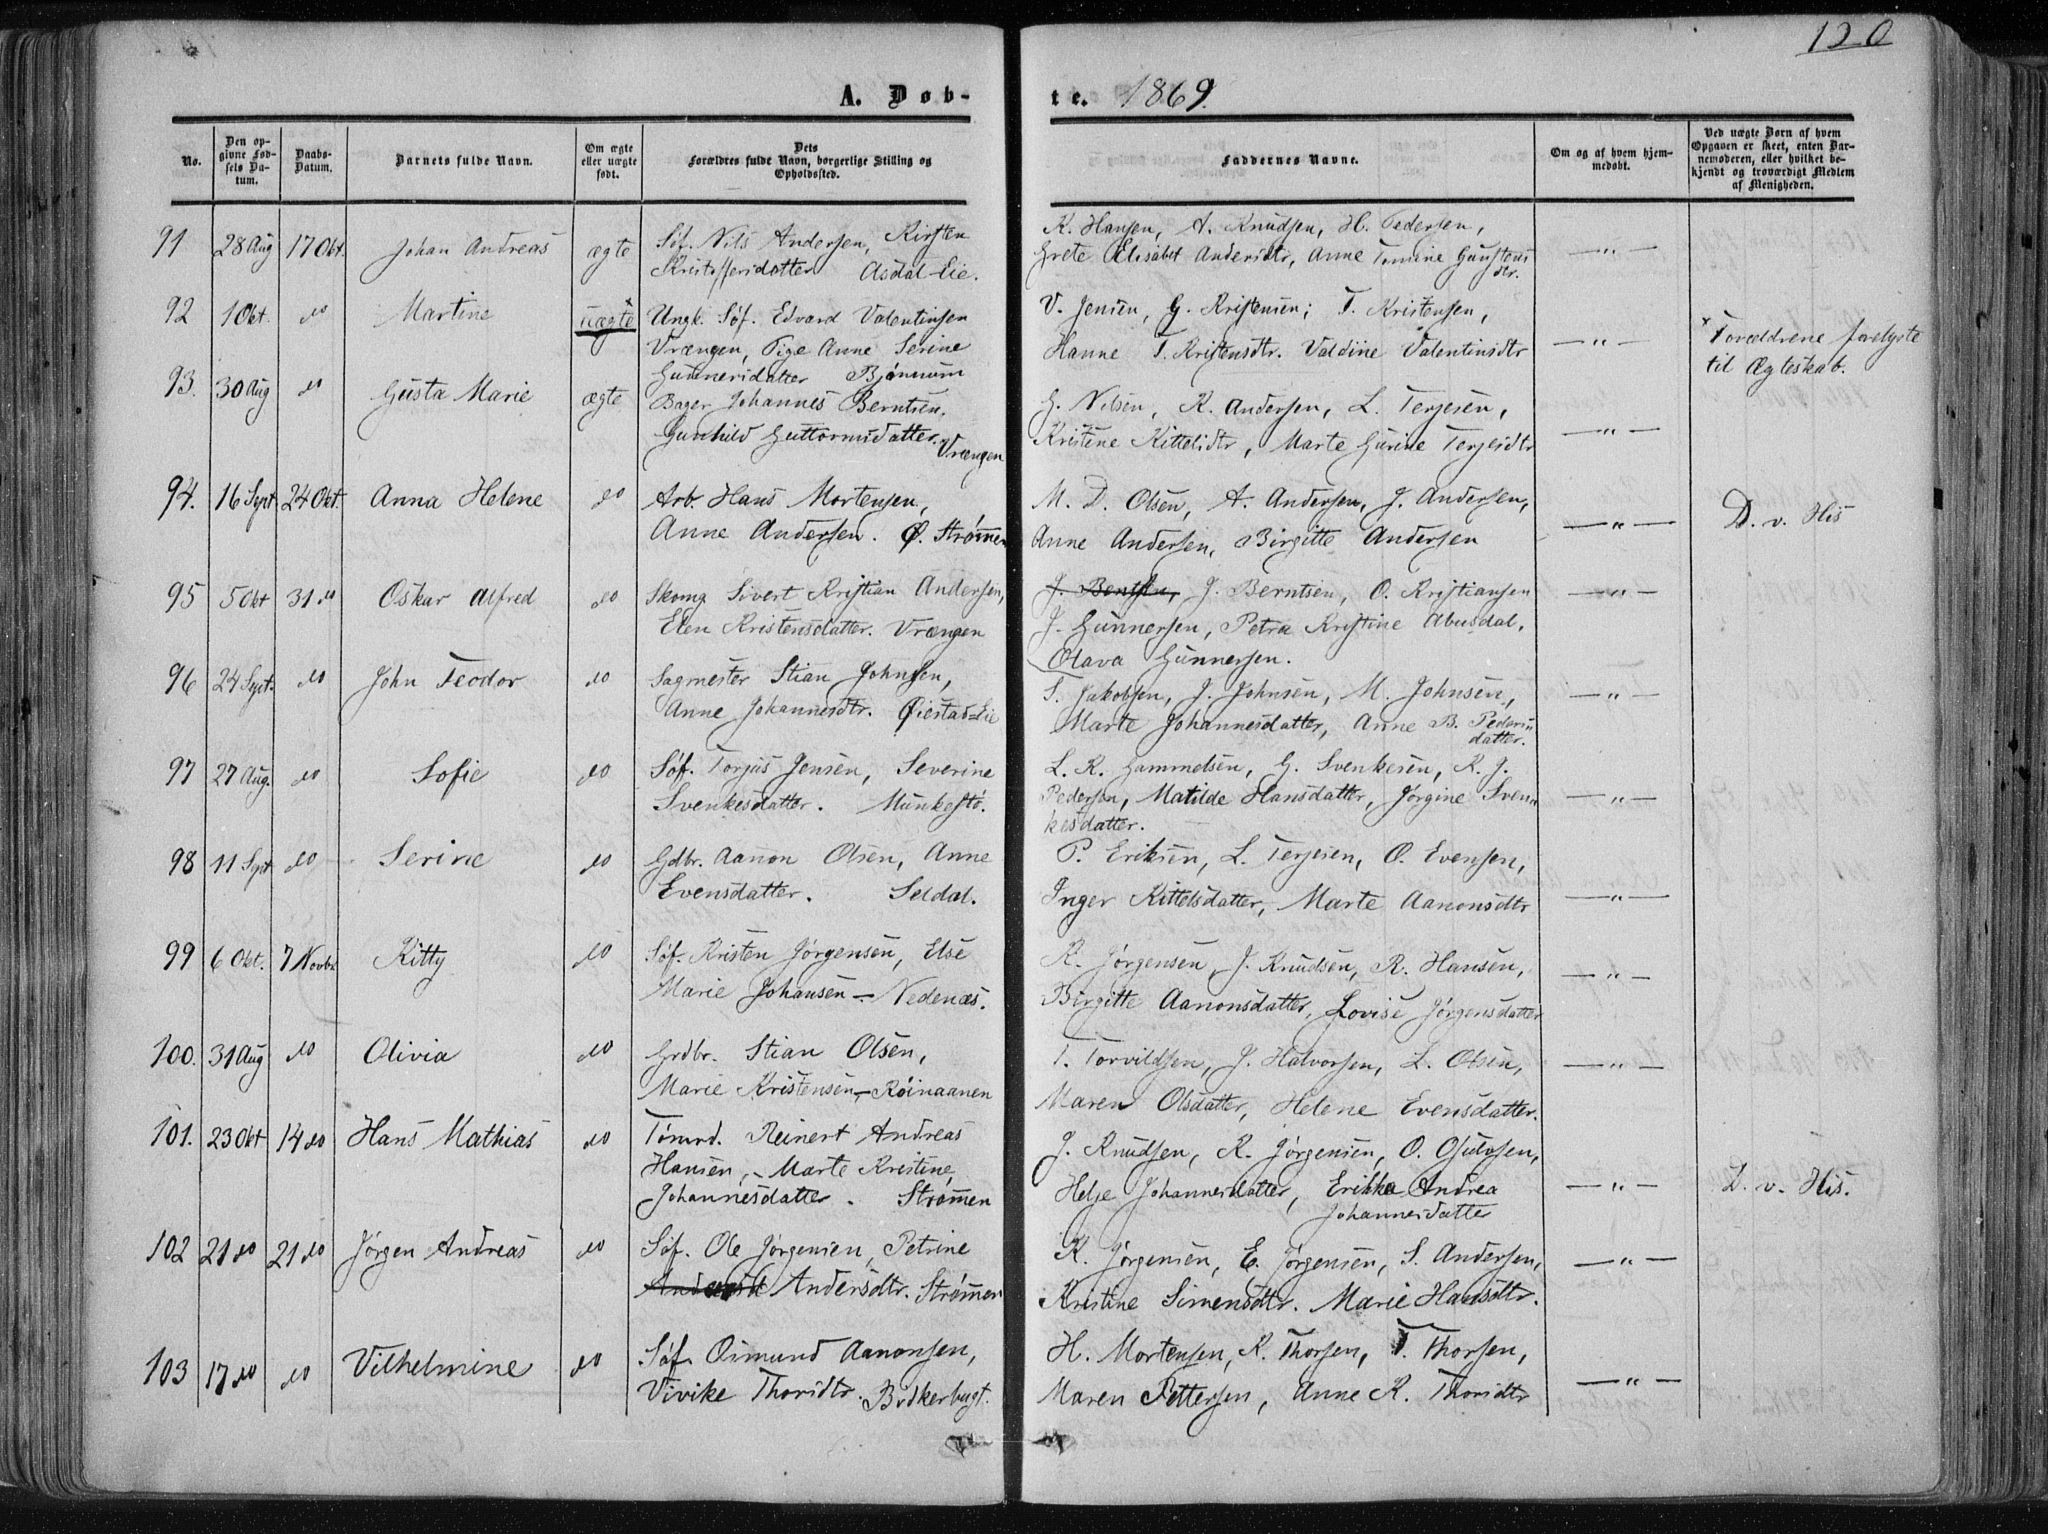 120
A. Døb-
te. 1869.
No.
Den op-
givne Fød-
sels Da-
tum.
Daabs-
Datum.
Barnets fulde Navn.
Om ægte
eller uægte
født.
Dets
Forældres fulde Navn, borgerlige Stilling og
Opholdssted.
Faddernes Navne.
Om og af hvem hjem-
medøbt.
Ved uægte Børn af hvem
Opgaven er skeet, enten Bar-
nemoderen, eller hvilket be-
kjendt og troværdigt Medlem
af Menigheden.
91 28 Aug 17 Okt. Johan Andreas ægte Søf. Nils Andersen, Kirsten K. Hansen, A. Knudsen, H. Pedersen,
Kristoffersdatter Asdal-Eie. Grete Elisabet Andersdtr, Anne Tomine Gunstens
dtr. — " —
92 1 Okt. do Martine uægte* Ungk. Søf. Edvard Valentinsen V. Jensen, G. Kristensen; T. Kristensen,
Vrængen, Pige Anne Serine Hanne T. Kristensdtr. Valdine Valentinsdtr — " — * Forældrene forelyste
Gunnersdatter Bjønnum til Ægteskab.
93. 30 Aug do Gusta Marie ægte Bager Johannes Berntsen, G. Nilsen, K. Andersen, L. Terjesen,
Gunhild Guttormsdatter. Kristene Kittelsdtr, Marte Gurine Terjesdtr — " —
Vrængen
94. 16 Sept. 24 Okt. Anna Helene do Arb. Hans Mortensen, M. D. Olsen, A. Andersen, J. Andersen,
Anne Andersen. Ø. Strømmen Anne Andersen, Birgitte Andersen — " — D. v. His
95 5 Okt 31 do Oskar Alfred do Skomg Sivert Kristian Andersen, J. Bentsen, J. Berntsen, O. Kristiansen — " —
Elen Kristensdatter. Vrængen J. Gunnersen, Petra Kristine Abusdal,
Olava Gunnersen.
96 24 Sept. do John Teodor do Sagmester Stian Johnsen, S. Jakobsen, J. Johnsen, M. Johnsen, — " —
Anne Johannesdtr. Øiestad-Eie Marte Johannesdatter, Anne B. Peders=
datter.
97 27 Aug. do Sofie do Søf. Torjus Jensen, Severine L. K. Gammelsen, G. Svenkesen, K. J.
Svenkesdatter. Munkestø. Pedersen, Matilde Hansdatter, Jørgine Sven= — " —
kesdatter.
98 11 Sept do Serine do Gdbr. Aanon Olsen, Anne P. Eriksen, L. Terjesen, O. Evensen,
Evensdatter. Seldal. Inger Kittelsdatter, Marte Aanonsdtr — " —
99 6 Okt. 7 Novbr Kitty do Søf. Kristen Jørgensen, Else K. Jørgensen, J. Knudsen, R. Hansen,
Marie Johansen — Nedenæs. Birgitte Aanonsdatter, Lovise Jørgensdatter — " —
100. 31 Aug do Olivia do Grdbr. Stian Olsen, T. Torvildsen, J. Halvorsen, L. Olsen, — " —
Marie Kristensen — Röinaanen Maren Olsdatter, Helene Evensdatter.
101. 23 Okt 14 do Hans Mathias do Tømrd. Reinert Andreas J. Knudsen, K. Jørgensen, O. Osulvsen,
Hansen, — Marte Kristine Helje Johannesdatter, Erikka Andrea — " — D. v. His.
Johannesdatter. Strømmen Johannesdatter
102 21 do 21 do Jørgen Andreas do Søf. Ole Jørgensen, Petrine K. Jørgensen, E. Jørgensen, S. Andersen, — " —
Andersdt Andersdtr. Strømmen Kristine Simensdtr. Marie Hansdtr.
103 17 do do Vilhelmine do Søf. Osmund Aanonsen, H. Mortensen, K. Thorsen, T. Thorsen,
Vivike Thorsdtr. Bødkerbugt. Maren Pettersen, Anne K. Thorsdtr — " —